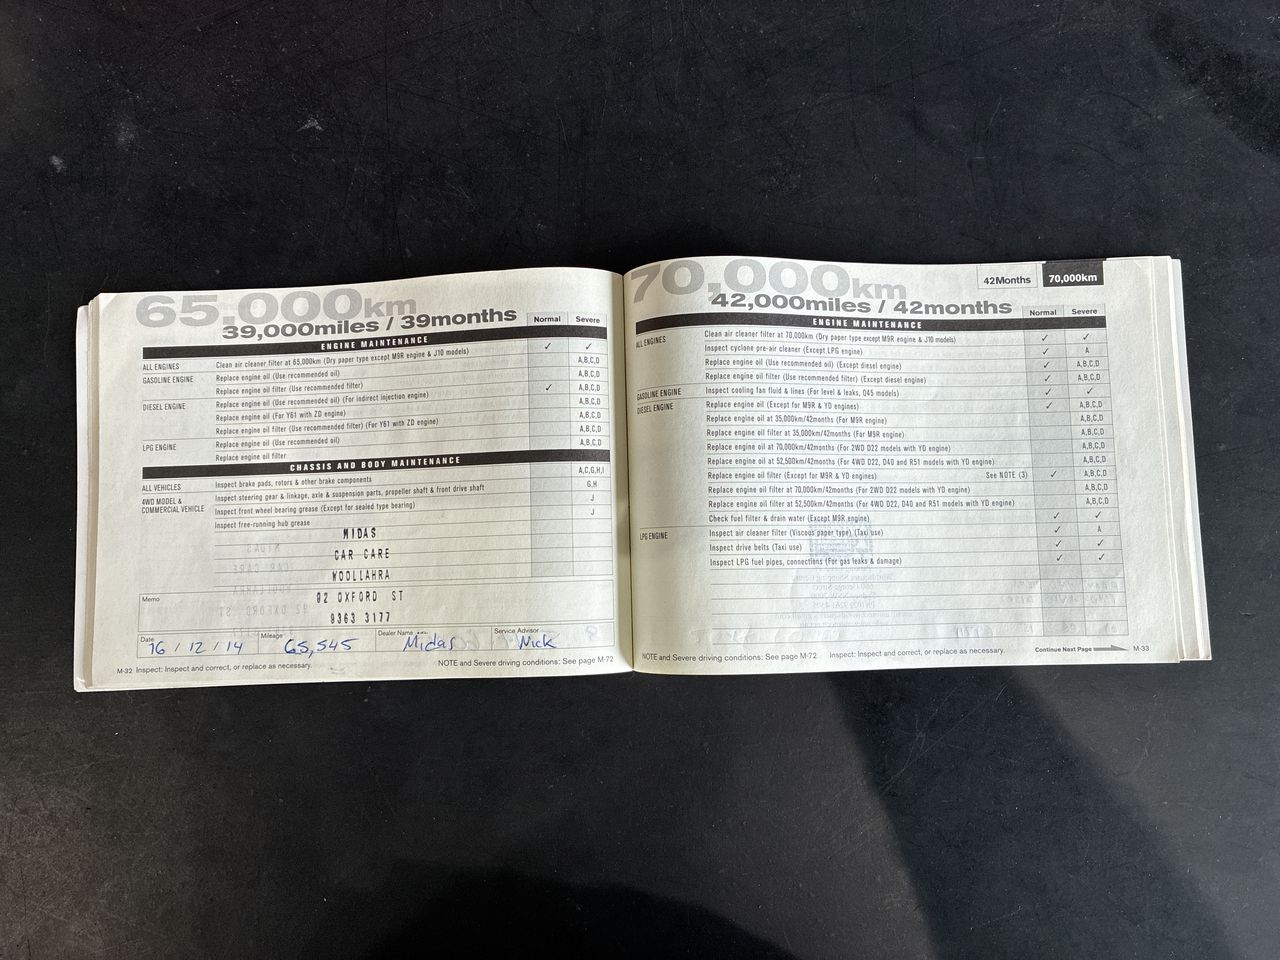 65,000km
39,000miles / 39months
Normal Severe
ENGINE MAINTENANCE
ALL ENGINES Clean air cleaner filter at 65,000km (Dry paper type except M9R engine & J10 models) ✓ ✓
GASOLINE ENGINE Replace engine oil (Use recommended oil) A,B,C,D
Replace engine oil filter (Use recommended filter) A,B,C,D
DIESEL ENGINE Replace engine oil (Use recommended oil) (For indirect injection engine) ✓ A,B,C,D
Replace engine oil (For Y61 with ZD engine) A,B,C,D
Replace engine oil filter (Use recommended filter) (For Y61 with ZD engine) A,B,C,D
LPG ENGINE Replace engine oil (Use recommended oil) A,B,C,D
Replace engine oil filter A,B,C,D
CHASSIS AND BODY MAINTENANCE
ALL VEHICLES Inspect brake pads, rotors & other brake components A,C,G,H,I
4WD MODEL & COMMERCIAL VEHICLE Inspect steering gear & linkage, axle & suspension parts, propeller shaft & front drive shaft G,H
Inspect front wheel bearing grease (Except for sealed type bearing) J
Inspect free-running hub grease J
MIDAS
CAR CARE
WOOLLAHRA
82 OXFORD ST
8363 3177
Memo
Date 16 / 12 / 14 Mileage 65,545 Dealer Name Midas Service Advisor Nick
M-32 Inspect: Inspect and correct, or replace as necessary. NOTE and Severe driving conditions: See page M-72
70,000km
42Months 70,000km
42,000miles / 42months
Normal Severe
ENGINE MAINTENANCE
ALL ENGINES Clean air cleaner filter at 70,000km (Dry paper type except M9R engine & J10 models) ✓ ✓
Inspect cyclone pre-air cleaner (Except LPG engine) ✓ A
Replace engine oil (Use recommended oil) (Except diesel engine) ✓ A,B,C,D
Replace engine oil filter (Use recommended filter) (Except diesel engine) ✓ A,B,C,D
GASOLINE ENGINE Inspect cooling fan fluid & lines (For level & leaks, Q45 models) ✓ ✓
DIESEL ENGINE Replace engine oil (Except for M9R & YD engines) ✓ A,B,C,D
Replace engine oil at 35,000km/42months (For M9R engine) A,B,C,D
Replace engine oil filter at 35,000km/42months (For M9R engine) A,B,C,D
Replace engine oil at 70,000km/42months (For 2WD D22 models with YD engine) A,B,C,D
Replace engine oil at 52,500km/42months (For 4WD D22, D40 and R51 models with YD engine) A,B,C,D
Replace engine oil filter (Except for M9R & YD engines) See NOTE (3) ✓ A,B,C,D
Replace engine oil filter at 70,000km/42months (For 2WD D22 models with YD engine) A,B,C,D
Replace engine oil filter at 52,500km/42months (For 4WD D22, D40 and R51 models with YD engine) A,B,C,D
Check fuel filter & drain water (Except M9R engine) ✓ ✓
LPG ENGINE Inspect air cleaner filter (Viscous paper type) (Taxi use) ✓ A
Inspect drive belts (Taxi use) ✓ ✓
Inspect LPG fuel pipes, connections (For gas leaks & damage) ✓ ✓
NOTE and Severe driving conditions: See page M-72 Inspect: Inspect and correct, or replace as necessary. Continue Next Page M-33